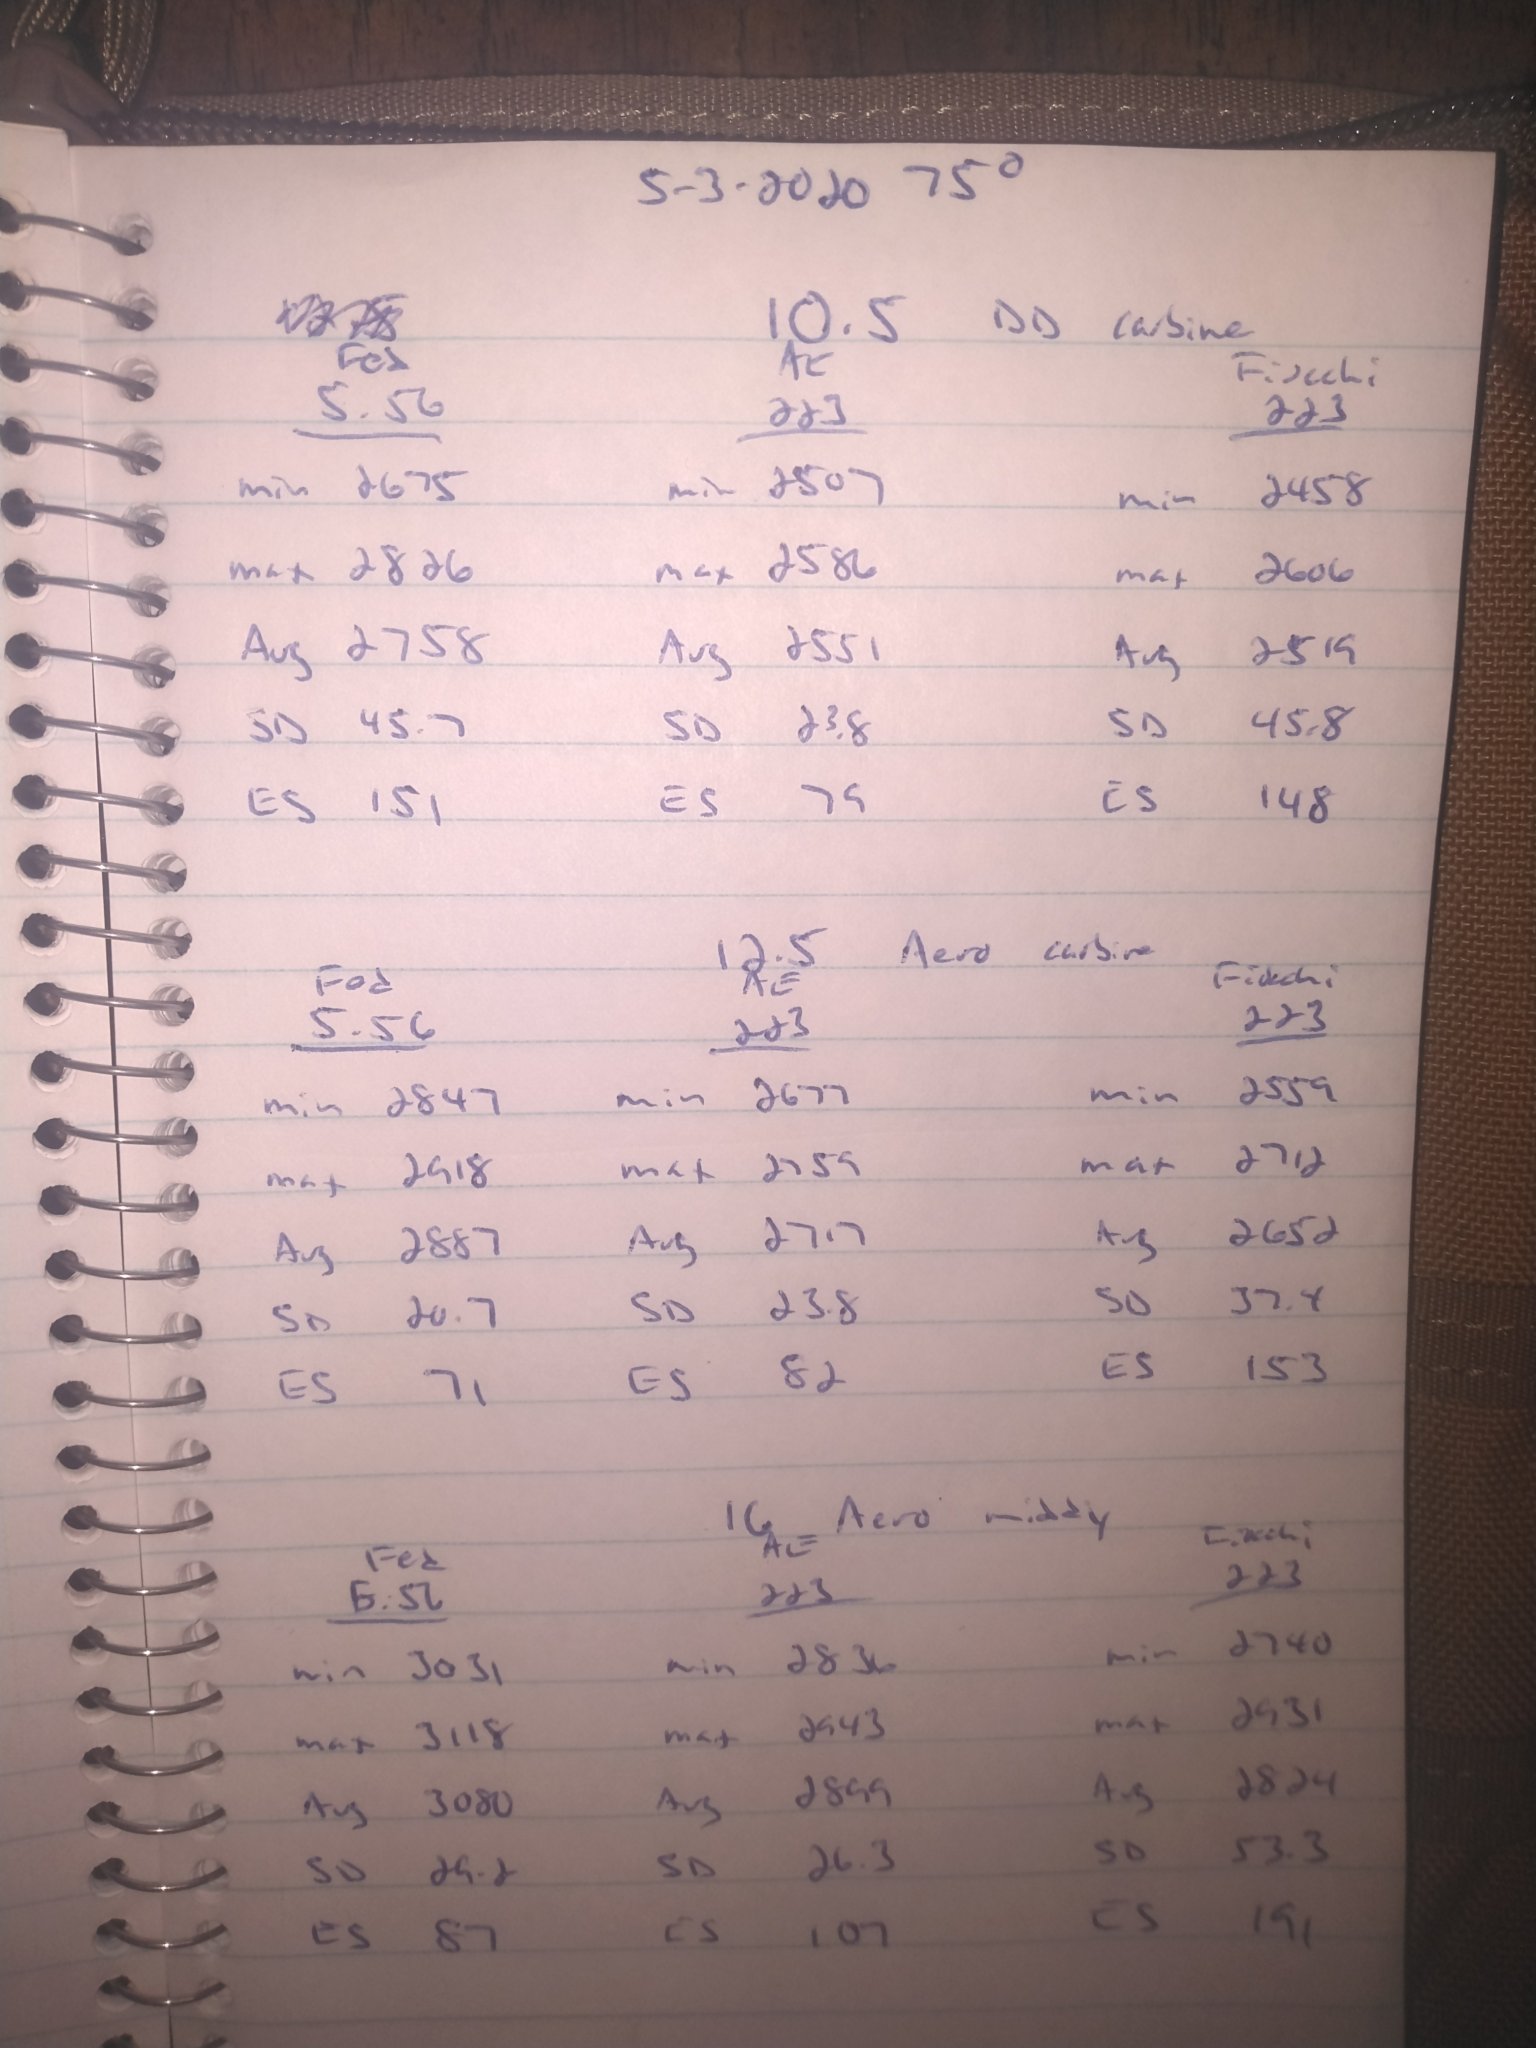 5-3-2020 75°
10.5 DD carbine
Fed AE Fiocchi
5.56 223 223
min 2675 min 2507 min 2458
max 2826 max 2586 max 2606
Avg 2758 Avg 2551 Avg 2519
SD 45.7 SD 23.8 SD 45.8
ES 151 ES 79 ES 148
12.5 Aero carbine
Fed AE Fiocchi
5.56 223 223
min 2847 min 2677 min 2559
max 2918 max 2759 max 2712
Avg 2887 Avg 2717 Avg 2652
SD 20.7 SD 23.8 SD 37.4
ES 71 ES 82 ES 153
16 Aero middy
Fed AE Fiocchi
5.56 223 223
min 3031 min 2836 min 2740
max 3118 max 2943 max 2931
Avg 3080 Avg 2899 Avg 2824
SD 29.2 SD 26.3 SD 53.3
ES 87 ES 107 ES 191